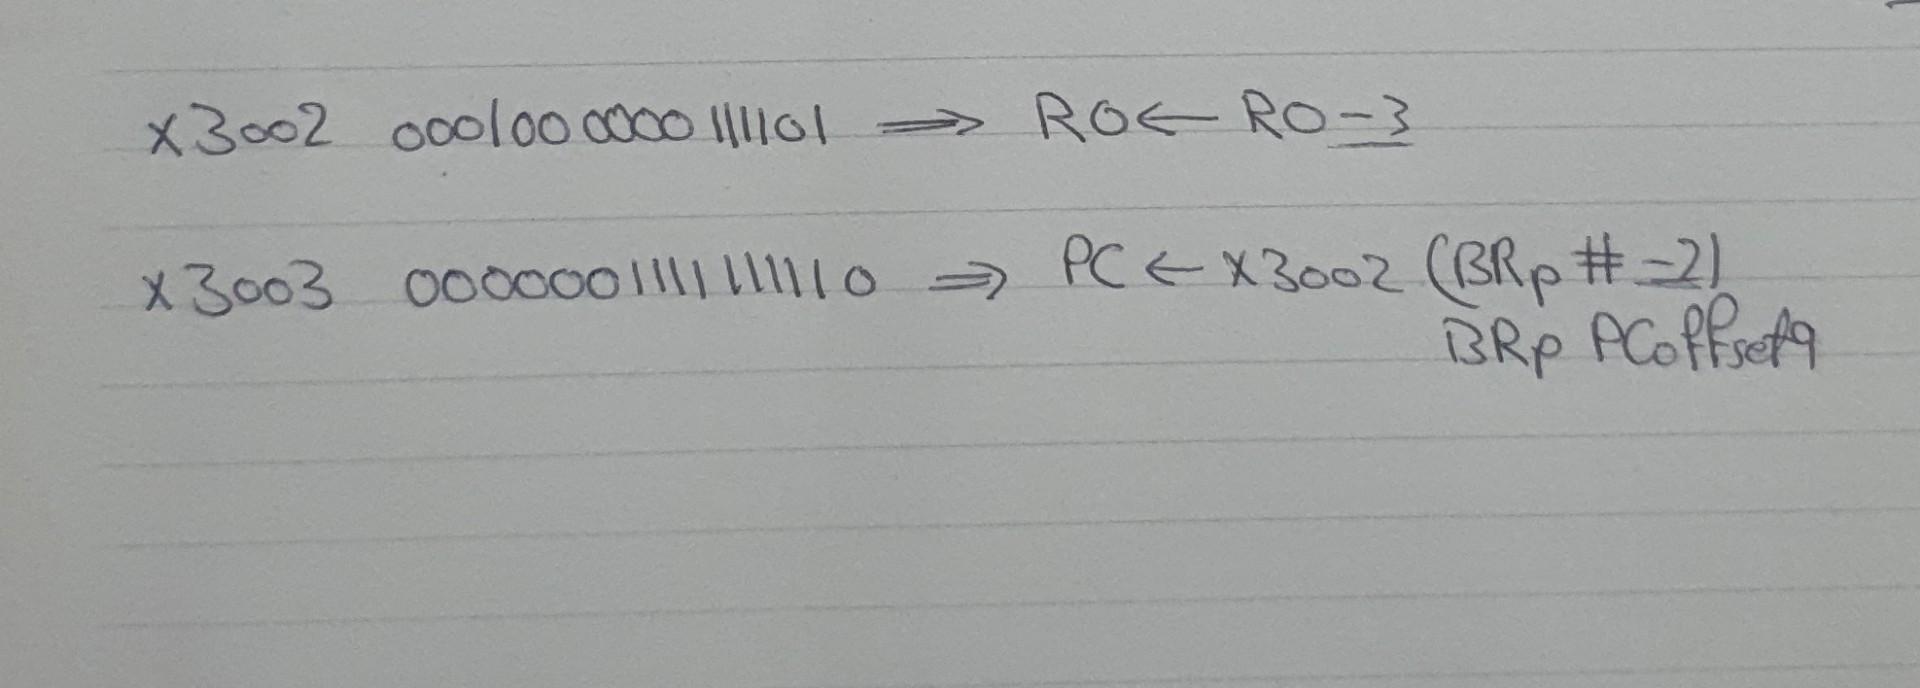 x3002 0001000000111101 ⇒ R0 ← R0 -3
x3003 0000001111111110 ⇒ PC ← x3002 (BRp # -2)
BRp PCoffset9